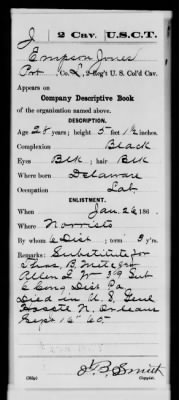 J | 2 Cav. | U.S.C.T.
Empson Jones
Pvt., Co. L, 2 Reg't U. S. Col'd Cav.
Appears on
Company Descriptive Book
of the organization named above.
DESCRIPTION.
Age 28 years; height 5 feet 1½ inches.
Complexion Black
Eyes Blk; hair Blk
Where born Delaware
Occupation Lab.
ENLISTMENT.
When Jan. 26, 186 .
Where Norristo
By whom 6 Dist; term 3 y'rs.
Remarks: Substitute for
Thos. B.
Allen 369 Sub
6 Cong Dis Pa
Died in U. S. Genl
N. Orleans
Sept 65
Smith
Copyist.